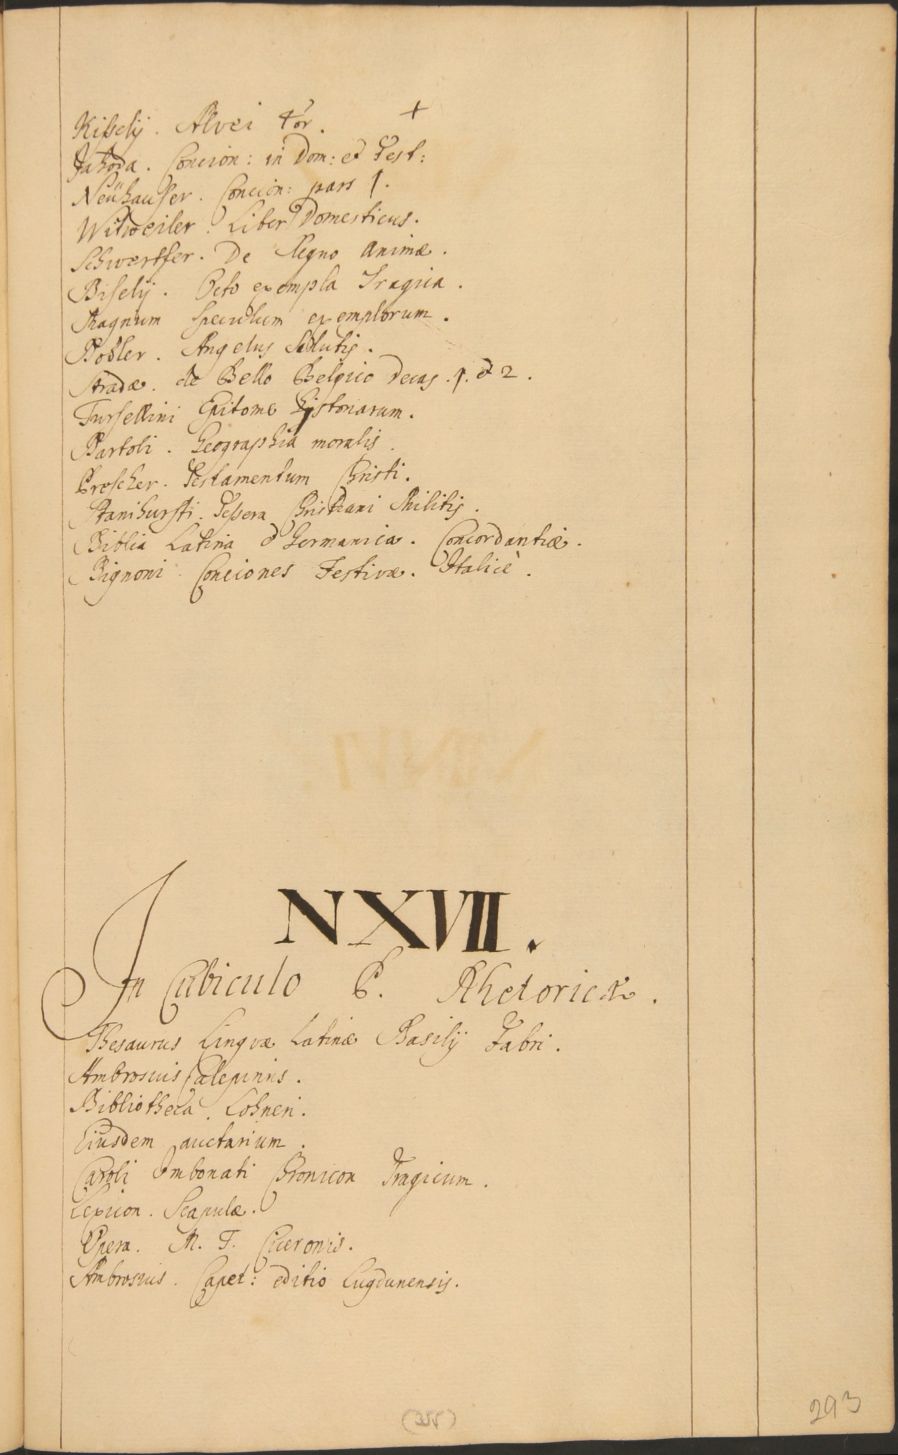 Kißelij. Alvei 4or. +
Jahoda. Concion: in Dom: et Fest:
Neühauser. Concion: pars 1.
Witweiler. Liber Domesticus.
Schwertfer. De Regno Animæ.
Biselij. Octo exempla Tragica.
Magnum speculum exemplorum.
Nobler. Angelus Salutis.
Stradæ. de Bello Belgico Decas. 1. et 2.
Tursellini Epitome Historiarum.
Bartoli. Geographia moralis.
Proscher. Testamentum Christi.
Stanihursti. Tessera Christiani Militis.
Biblia Latina et Germanica. Concordantiæ.
Bignoni Conciones Festivæ. Italicè.
N XVII.
In Cubiculo P. Rhetoricæ.
Thesaurus Linguæ Latinæ Basilij Fabri.
Ambrosius Calepinus.
Bibliotheca. Lohneri.
Eiusdem auctarium.
Caroli Imbonati Chronicon Tragicum.
Lexicon. Scapulæ.
Opera. M. T. Ciceronis.
Ambrosius. Calep: editio Lugdunensis.
(355)
293